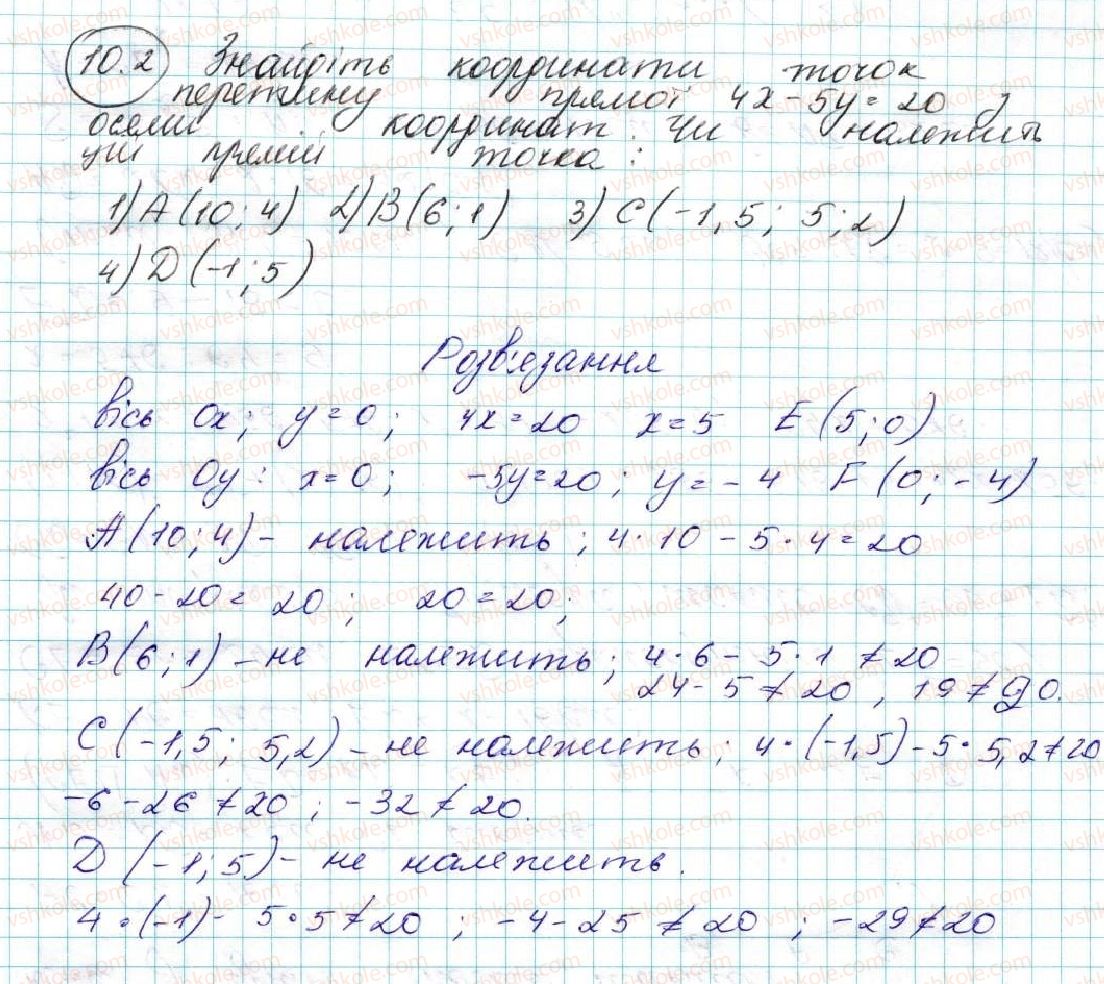 10.2 Знайдіть координати точок
перетину прямої 4x - 5y = 20 з
осями координат. Чи належить
цій прямій точка:
1) A (10; 4) 2) B (6; 1) 3) C (-1,5; 5; 2)
4) D (-1; 5)
Розв'язання
вісь Ox; y = 0; 4x = 20 x = 5 E (5; 0)
вісь Oy: x = 0; -5y = 20; y = -4 F (0; -4)
A (10; 4) - належить; 4 · 10 - 5 · 4 = 20
40 - 20 = 20; 20 = 20;
B (6; 1) - не належить; 4 · 6 - 5 · 1 ≠ 20
24 - 5 ≠ 20, 19 ≠ 20.
C (-1,5; 5,2) - не належить; 4 · (-1,5) - 5 · 5,2 ≠ 20
-6 - 26 ≠ 20; -32 ≠ 20.
D (-1; 5) - не належить.
4 · (-1) - 5 · 5 ≠ 20; -4 - 25 ≠ 20; -29 ≠ 20